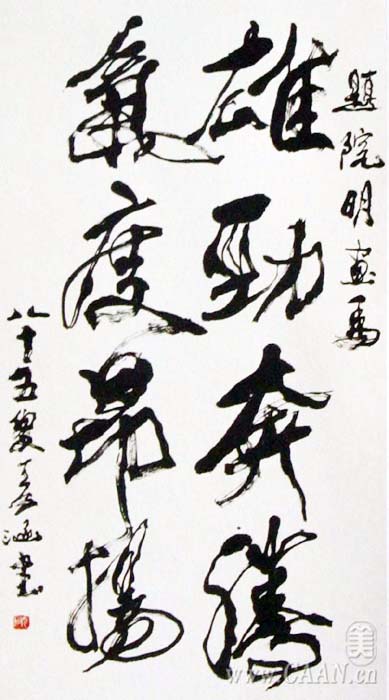 題院明畫馬
雄勁奔騰
氣度昂揚
八十五叟王涵書
美
www.CAAN.cn